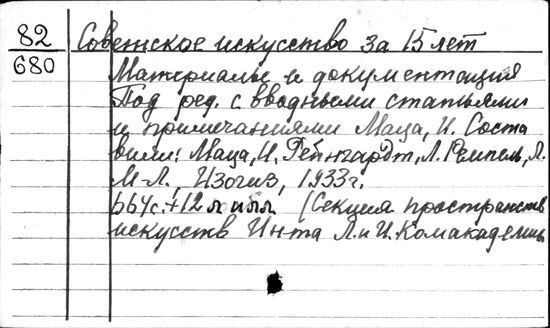 82
680
Советское искусство за 15 лет
Материалы и документация
Под ред. с вводными статьями
и примечаниями Маца, И. Соста
вили: Маца, И, Рейнгардт, Л. Ремпель, Л.
М-Л., Изогиз, 1933г.
664с.+12 л илл. (Секция пространств
искусств Ин-та Л. и И. Комакадемии